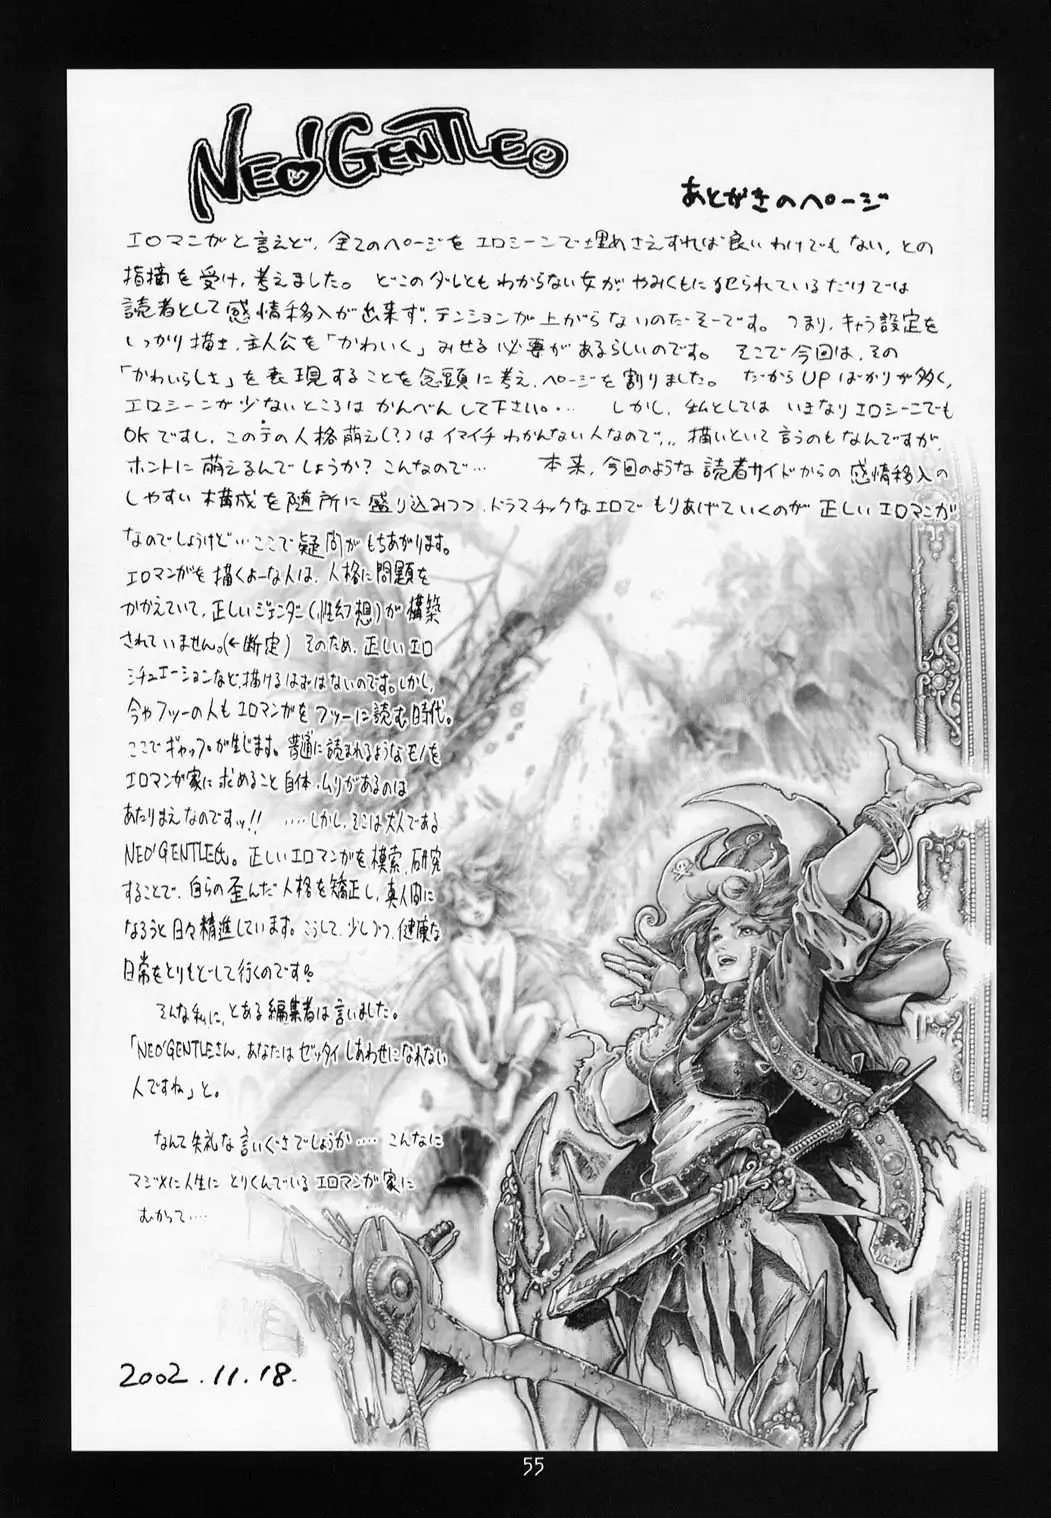 NEO'GENTLE
あとがきのページ
エロマンガと言えど、全てのページをエロシーンで埋めさえすれば良いわけでもない、との
指摘を受け、考えました。 どこのダレともわからない女がやみくもに犯られているだけでは
読者として感情移入が出来ず、テンションが上がらないのだそーです。 つまり、キャラ設定を
しっかり描き、主人公を「かわいく」みせる必要があるらしいのです。 そこで今回は、その
「かわいらしさ」を表現することを念頭に考え、ページを割りました。 だからUPばかりが多く、
エロシーンが少ないところはかんべんして下さい。… しかし、私としてはいきなりエロシーンでも
OKですし、このテの人格萌え(?)はイマイチわかんない人なので... 描いといて言うのもなんですが、
ホントに萌えるんでしょうか? こんなので… 本来、今回のような読者サイドからの感情移入の
しやすい構成を随所に盛り込みつつ、ドラマチックなエロでもりあげていくのが正しいエロマンガ
なのでしょうけど… ここで疑問がもちあがります。
エロマンガを描くよーな人は、人格に問題を
かかえていて、正しいジェンダー(性幻想)が構築
されていません。(←断定) そのため、正しいエロ
シチュエーションなど、描けるはずはないのです。しかし、
今やフツーの人もエロマンガをフツーに読む時代。
ここでギャップが生じます。普通に読まれるようなモノを
エロマンガ家に求めること自体、ムリがあるのは
あたりまえなのですッ!! ‥‥しかし、そこは大人である
NEO'GENTLE氏。正しいエロマンガを模索、研究
することで、自らの歪んだ人格を矯正し、真人間に
なろうと日々精進しています。こうして、少しづつ、健康な
日常をとりもどして行くのです。
そんな私に、とある編集者は言いました。
「NEO'GENTLEさん、あなたはゼッタイしあわせになれない
人ですね」と。
なんて失礼な言いぐさでしょうか‥‥ こんなに
マジメに人生にとりくんでいるエロマンガ家に
むかって‥‥
2002.11.18.
55